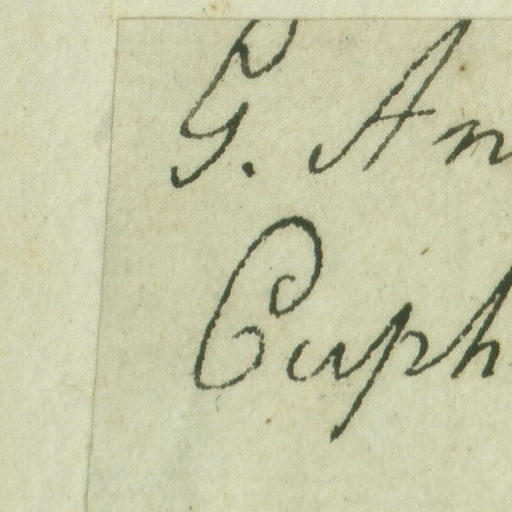 G. An
Cuph